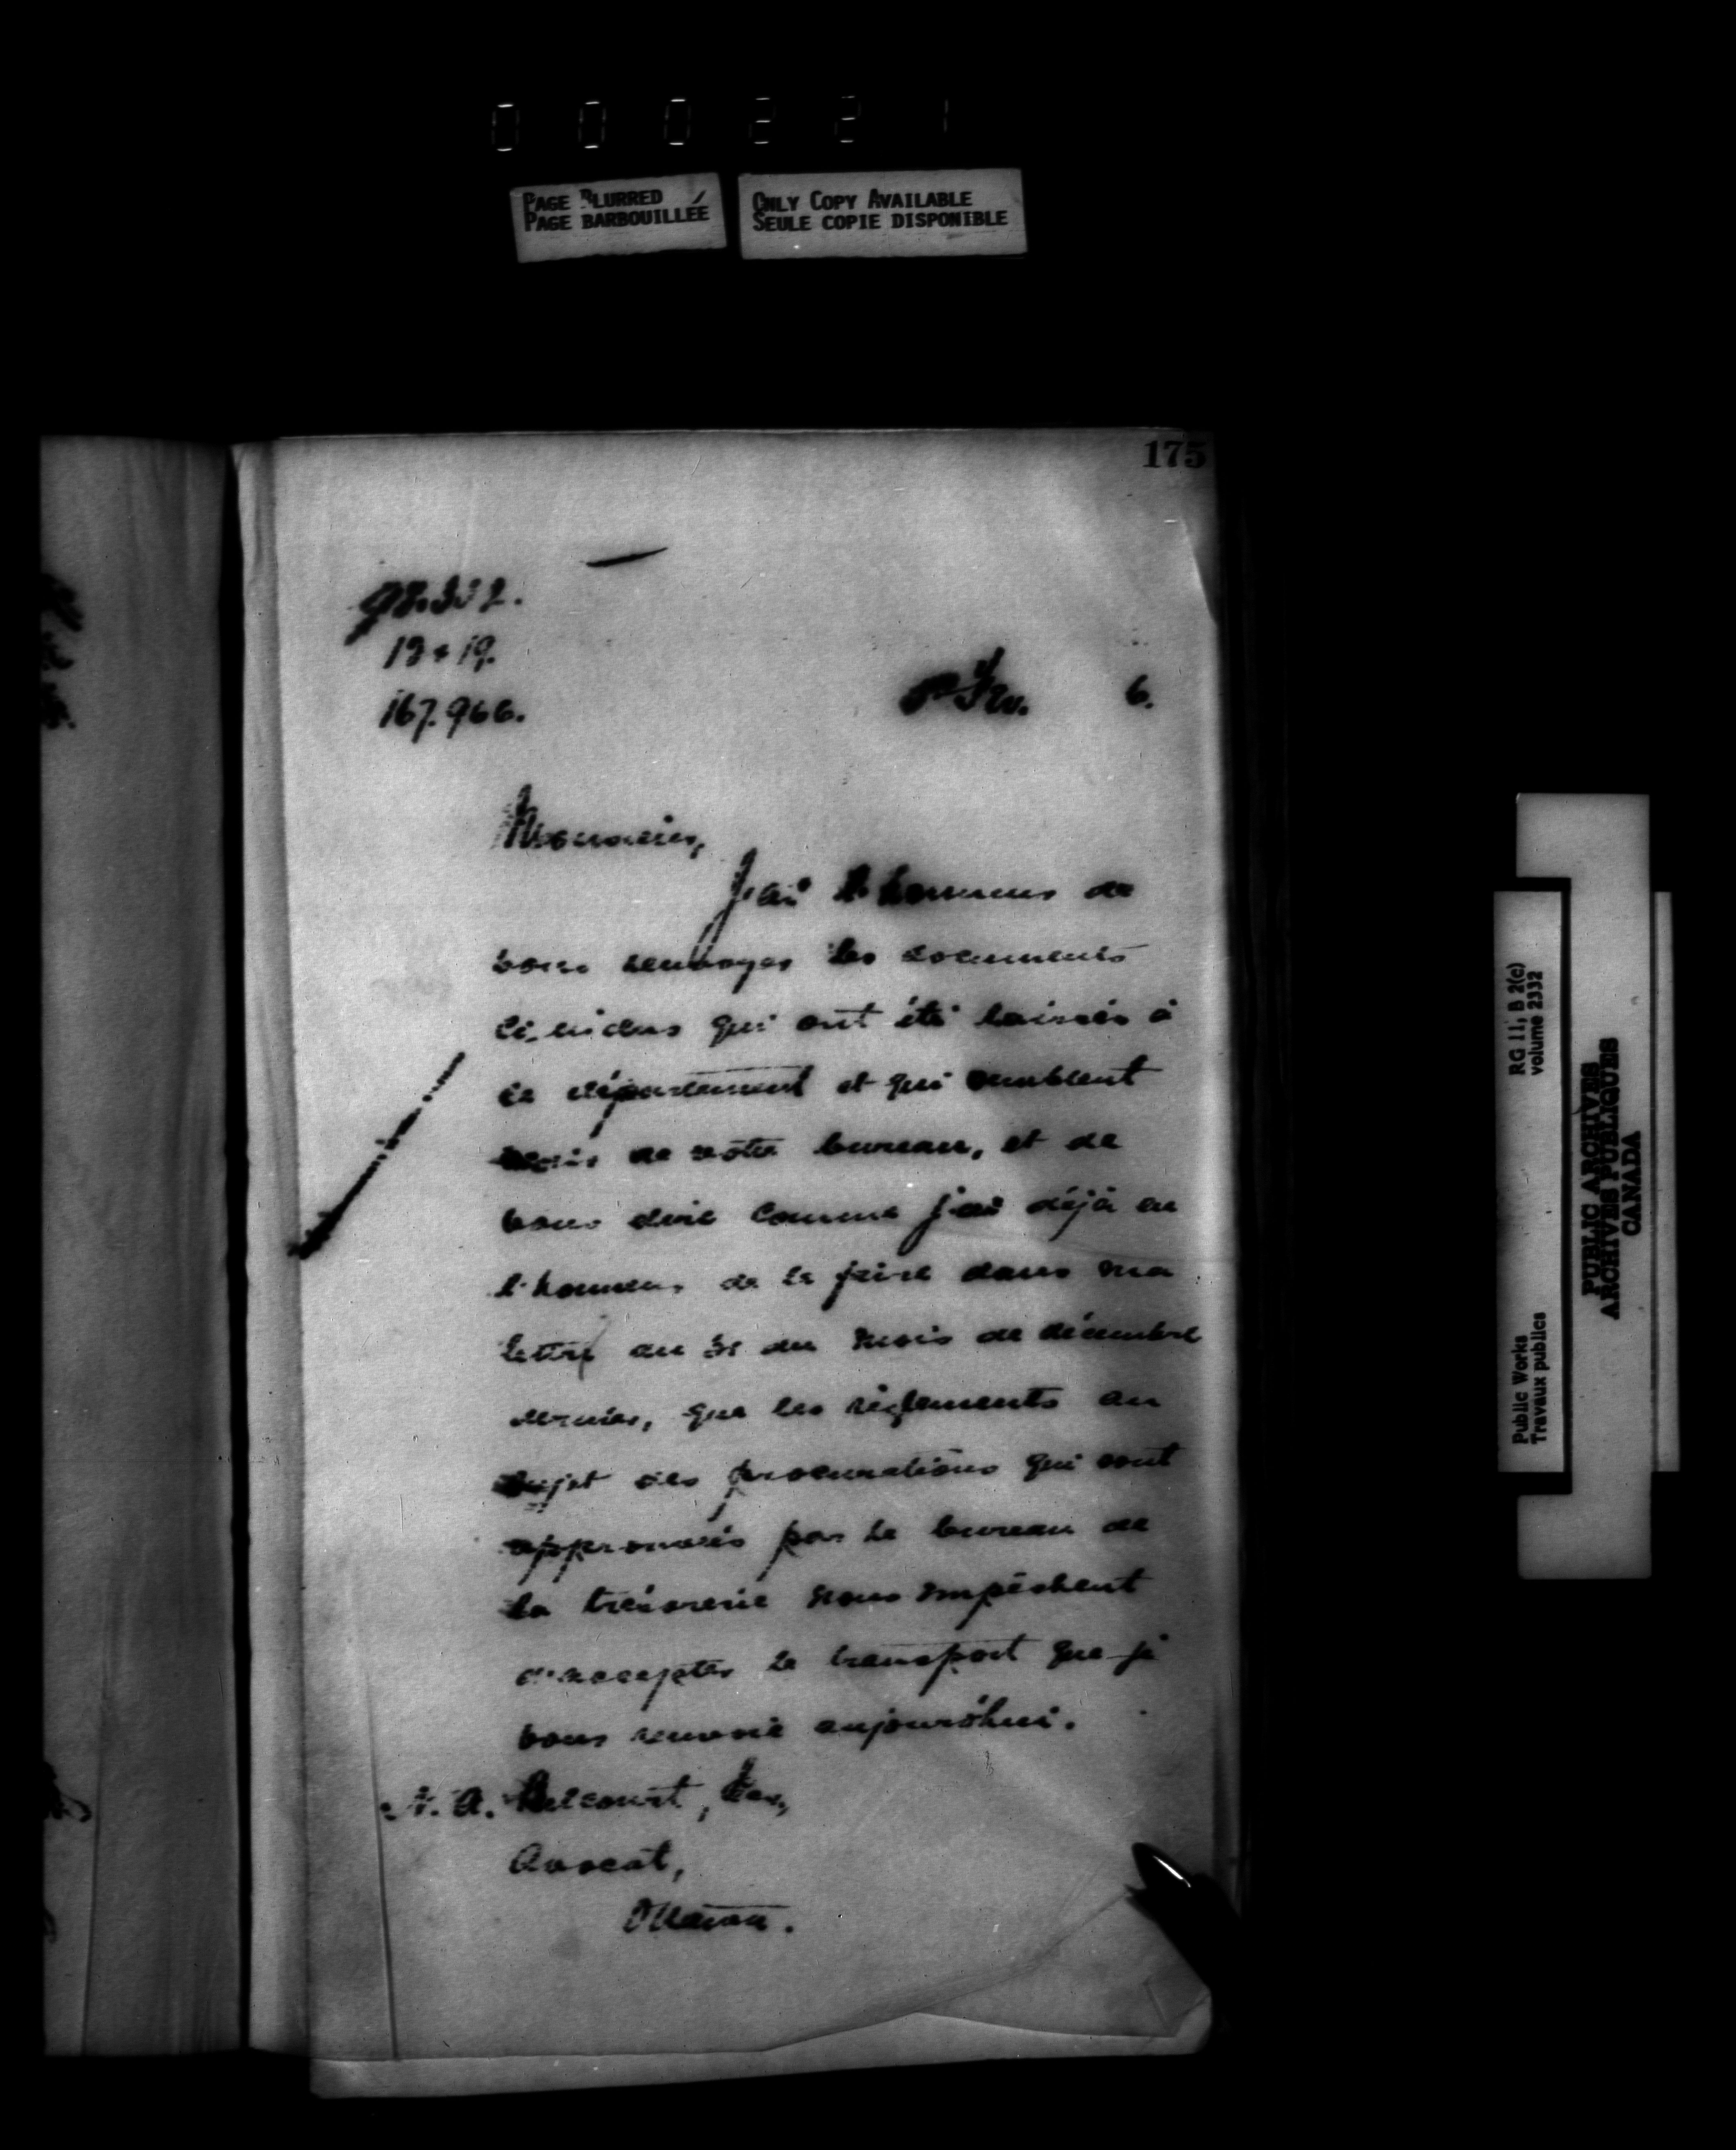 000221
PAGE BLURRED
PAGE BARBOUILLÉE
ONLY COPY AVAILABLE
SEULE COPIE DISPONIBLE
175
12 & 19.
167.966.
6.
Monsieur,
J'ai l'honneur de
vous renvoyer les documents
ci-inclus qui ont été laissés à
ce département et qui semblent
venir de votre bureau, et de
vous dire comme j'ai déjà eu
l'honneur de le faire dans ma
lettre du 31 du mois de décembre
dernier, que les règlements au
sujet des procurations qui sont
approuvés par le bureau de
la trésorerie nous empêchent
d'accepter le transport que je
vous renvoie aujourd'hui.
N. A. Belcourt, Ecr,
Avocat,
Ottawa.
RG 11, B 2(c)
volume 2332
Public Works
Travaux publics
PUBLIC ARCHIVES
ARCHIVES PUBLIQUES
CANADA